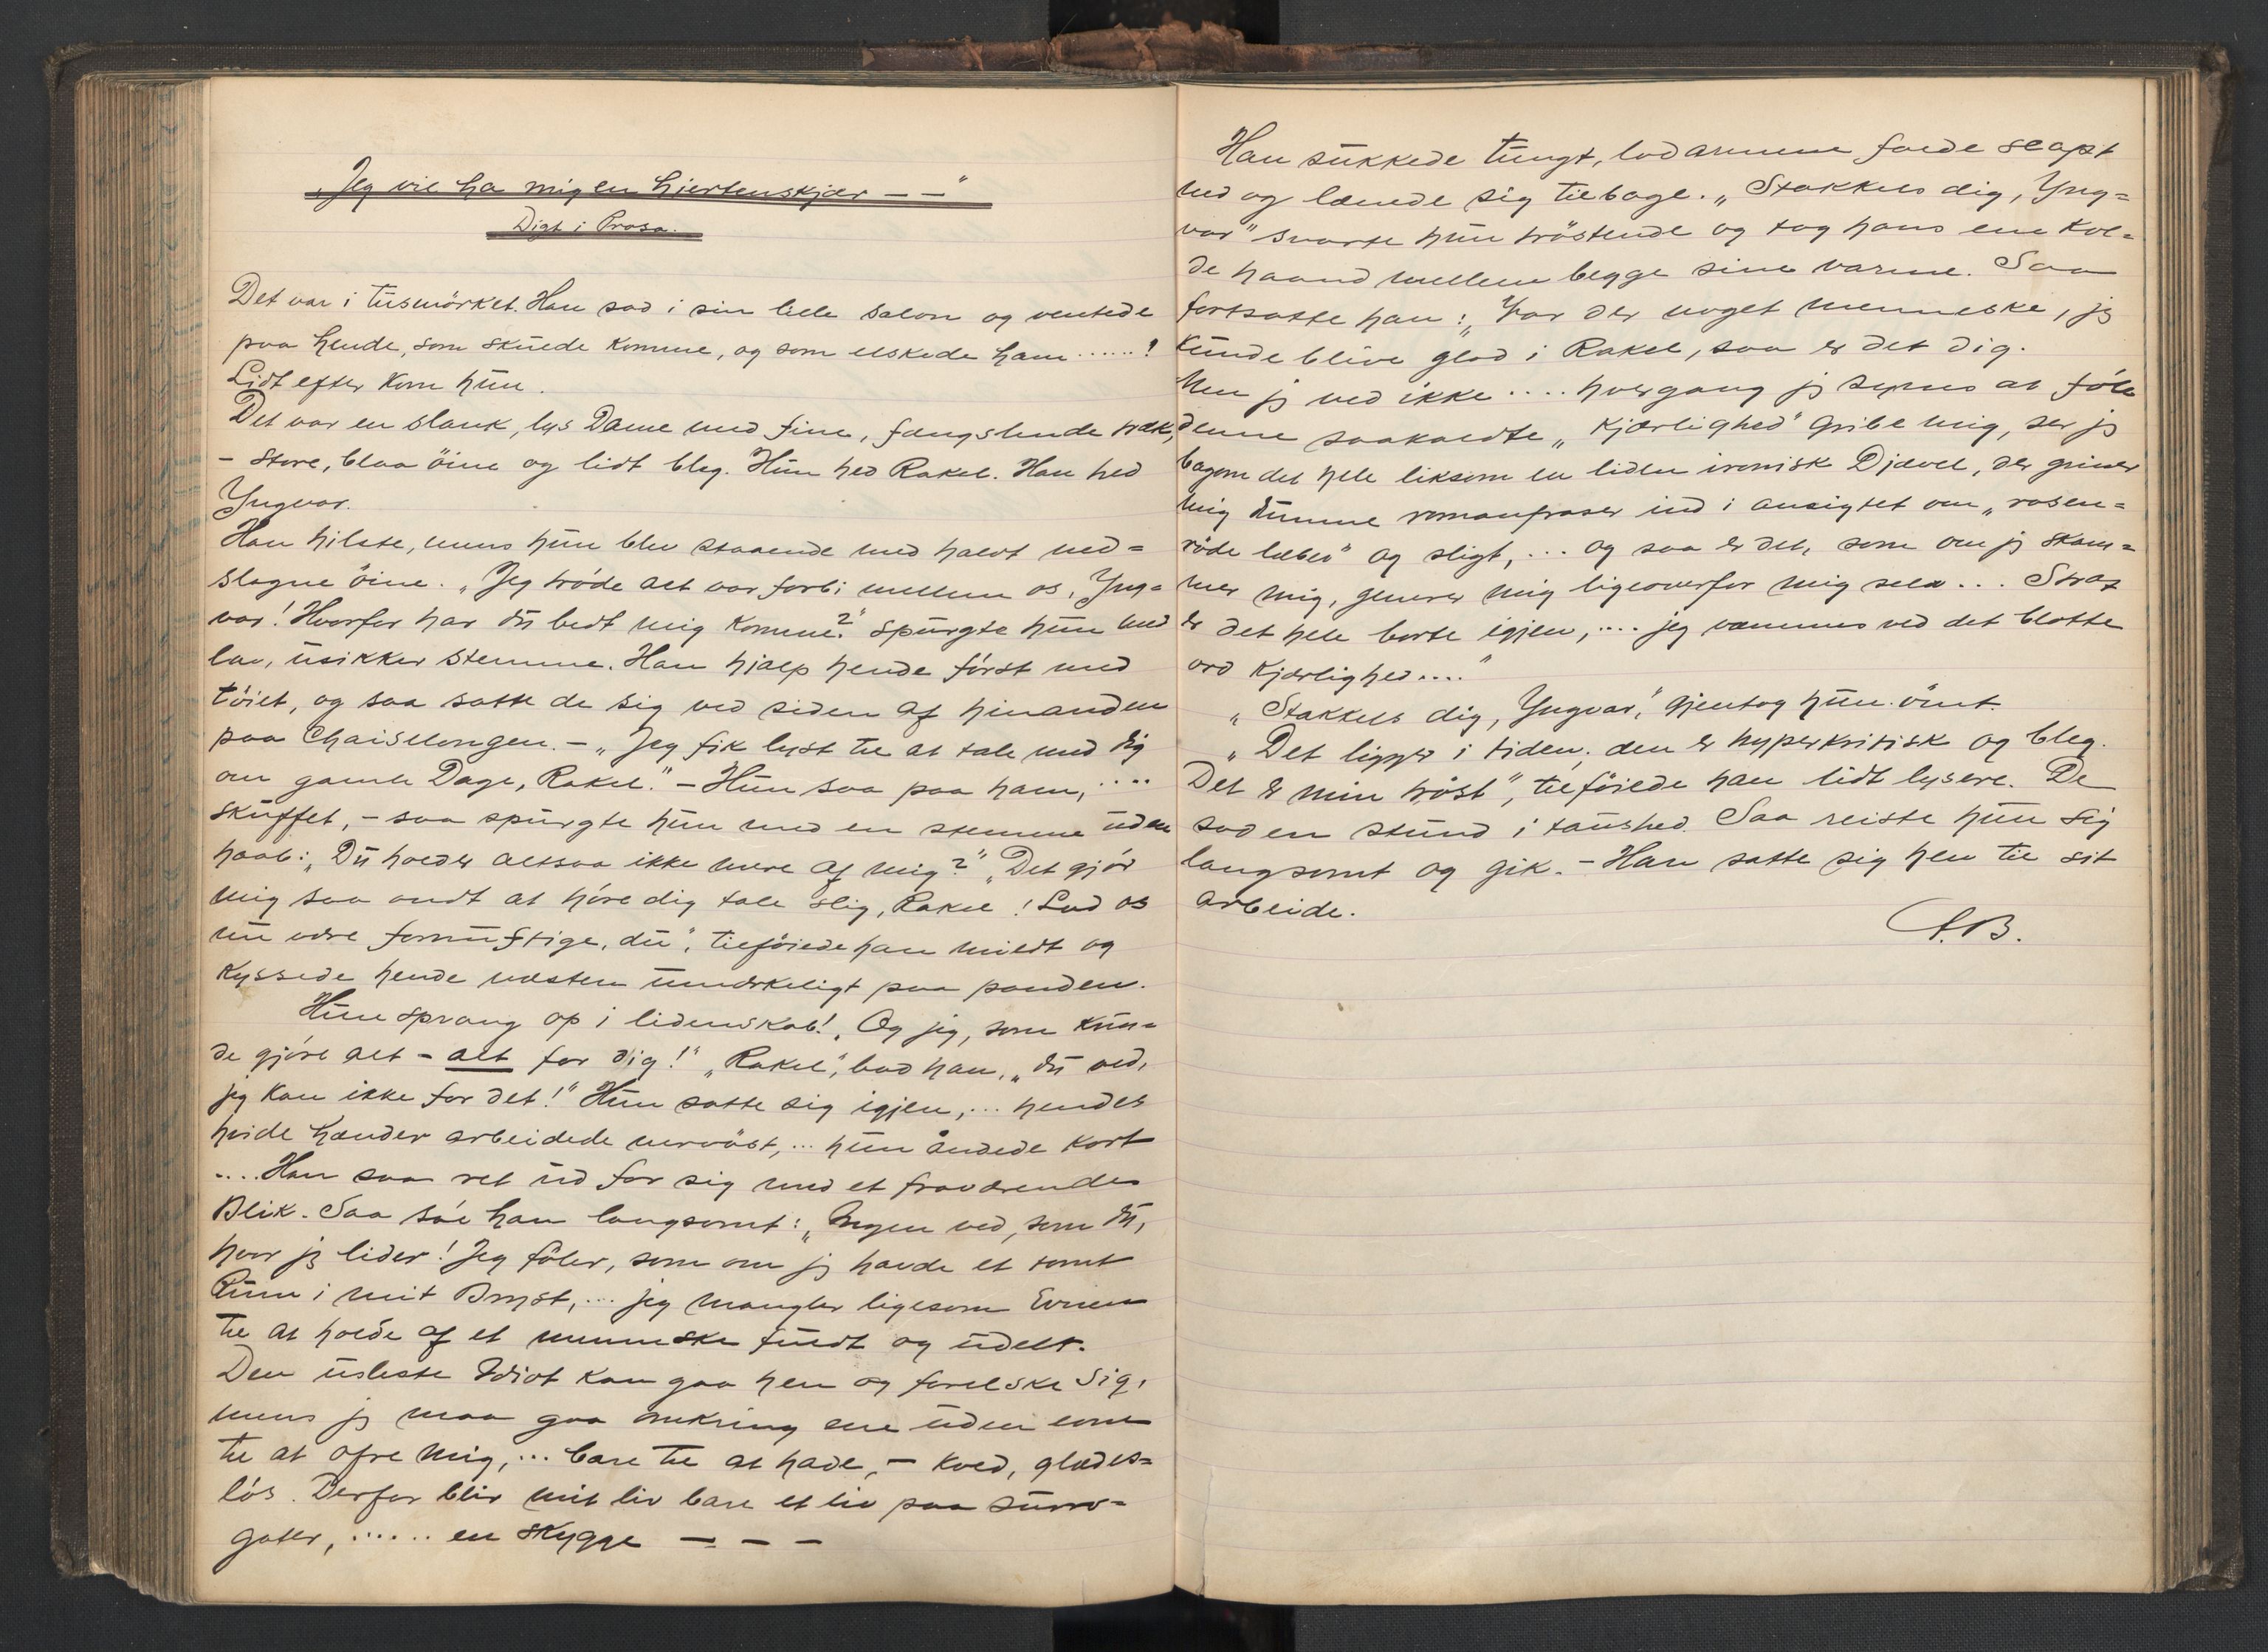 „Jeg vil ha mig en hjertenskjær – –"
Digt i Prosa.
Det var i tusmörket. Han sad i sin lille salon og ventede
paa hende, som skulde komme, og som elskede ham......!
Lidt efter kom hun.
Det var en slank, lys Dame med fine, fængslende træk,
– store, blaa öine og lidt bleg. Hun hed Rakel. Han hed
Yngvar.
Han hilste, mens hun blev staaende med halvt ned=
slagne öine. „Jeg tróde alt var forbi mellem os, Yng=
var! Hvorfor har du bedt mig komme?" spurgte hun med
lav, usikker stemme. Han hjalp hende först med
töiet, og saa satte de sig ved siden af hinanden
paa Chaiselongen. – „Jeg fik lyst til at tale med dig
om gamle Dage, Rakel." – Hun saa paa ham, ....
skuffet, – saa spurgte hun med en stemme uden
haab: „Du holder altsaa ikke mere af mig?" „Det gjör
mig saa ondt at höre dig tale slig, Rakel! Lad os
nu være fornuftige, du", tilföiede han mildt og
kyssede hende næsten umærkeligt paa panden.
Hun sprang op i lidenskab! „Og jeg, som kun=
de gjöre alt – alt for dig!" „Rakel", bad han, „du ved,
jeg kan ikke for det!" Hun satte sig igjen, ... hendes
hvide hænder arbeidede nervöst, ... hun åndede kort
.... Han saa ret ud for sig med et fraværende
Blik. Saa sa'e han langsomt: „Ingen ved, som du,
hvor jeg lider! Jeg föler, som om jeg havde et tomt
Rum i mit Bryst, ... jeg mangler ligesom Evnen
til at holde af et menneske fuldt og udelt.
Den usleste Idiot kan gaa hen og forelske sig,
mens jeg maa gaa omkring ene uden evne
til at ofre mig, ... bare til at hade, – kold, glædes=
lös. Derfor blir mit liv bare et liv paa surro=
gater, ...... en skygge – – –
Han sukkede tungt, lod armene falde slapt
ned og lænede sig tilbage. „Stakkels dig, Yng=
var" svarte hun tröstende og tog hans ene kol=
de haand mellem begge sine varme. Saa
fortsatte han: „Var der noget menneske, jeg
kunde blive glad i Rakel, saa er det dig.
Men jeg ved ikke .... hvergang jeg synes at föle
denne saakaldte „Kjærlighed" gribe mig, ser jeg
bagom det hele liksom en liden ironisk Djævel, der griner
mig dumme romanfraser ind i ansigtet om „rosen=
röde læber" og sligt, ... og saa er det, som om jeg skam=
mer mig, generer mig ligeoverfor mig selv ... Strax
er det hele borte igjen, .... jeg væmmes ved det blotte
ord Kjærlighed...."
„Stakkels dig, Yngvar", gjentog hun ömt.
„Det ligger i tiden; den er hyperkritisk og bleg.
Det er min tröst", tilföiede han lidt lysere. De
sad en stund i taushed. Saa reiste hun sig
langsomt og gik. – Han satte sig hen til sit
arbeide.